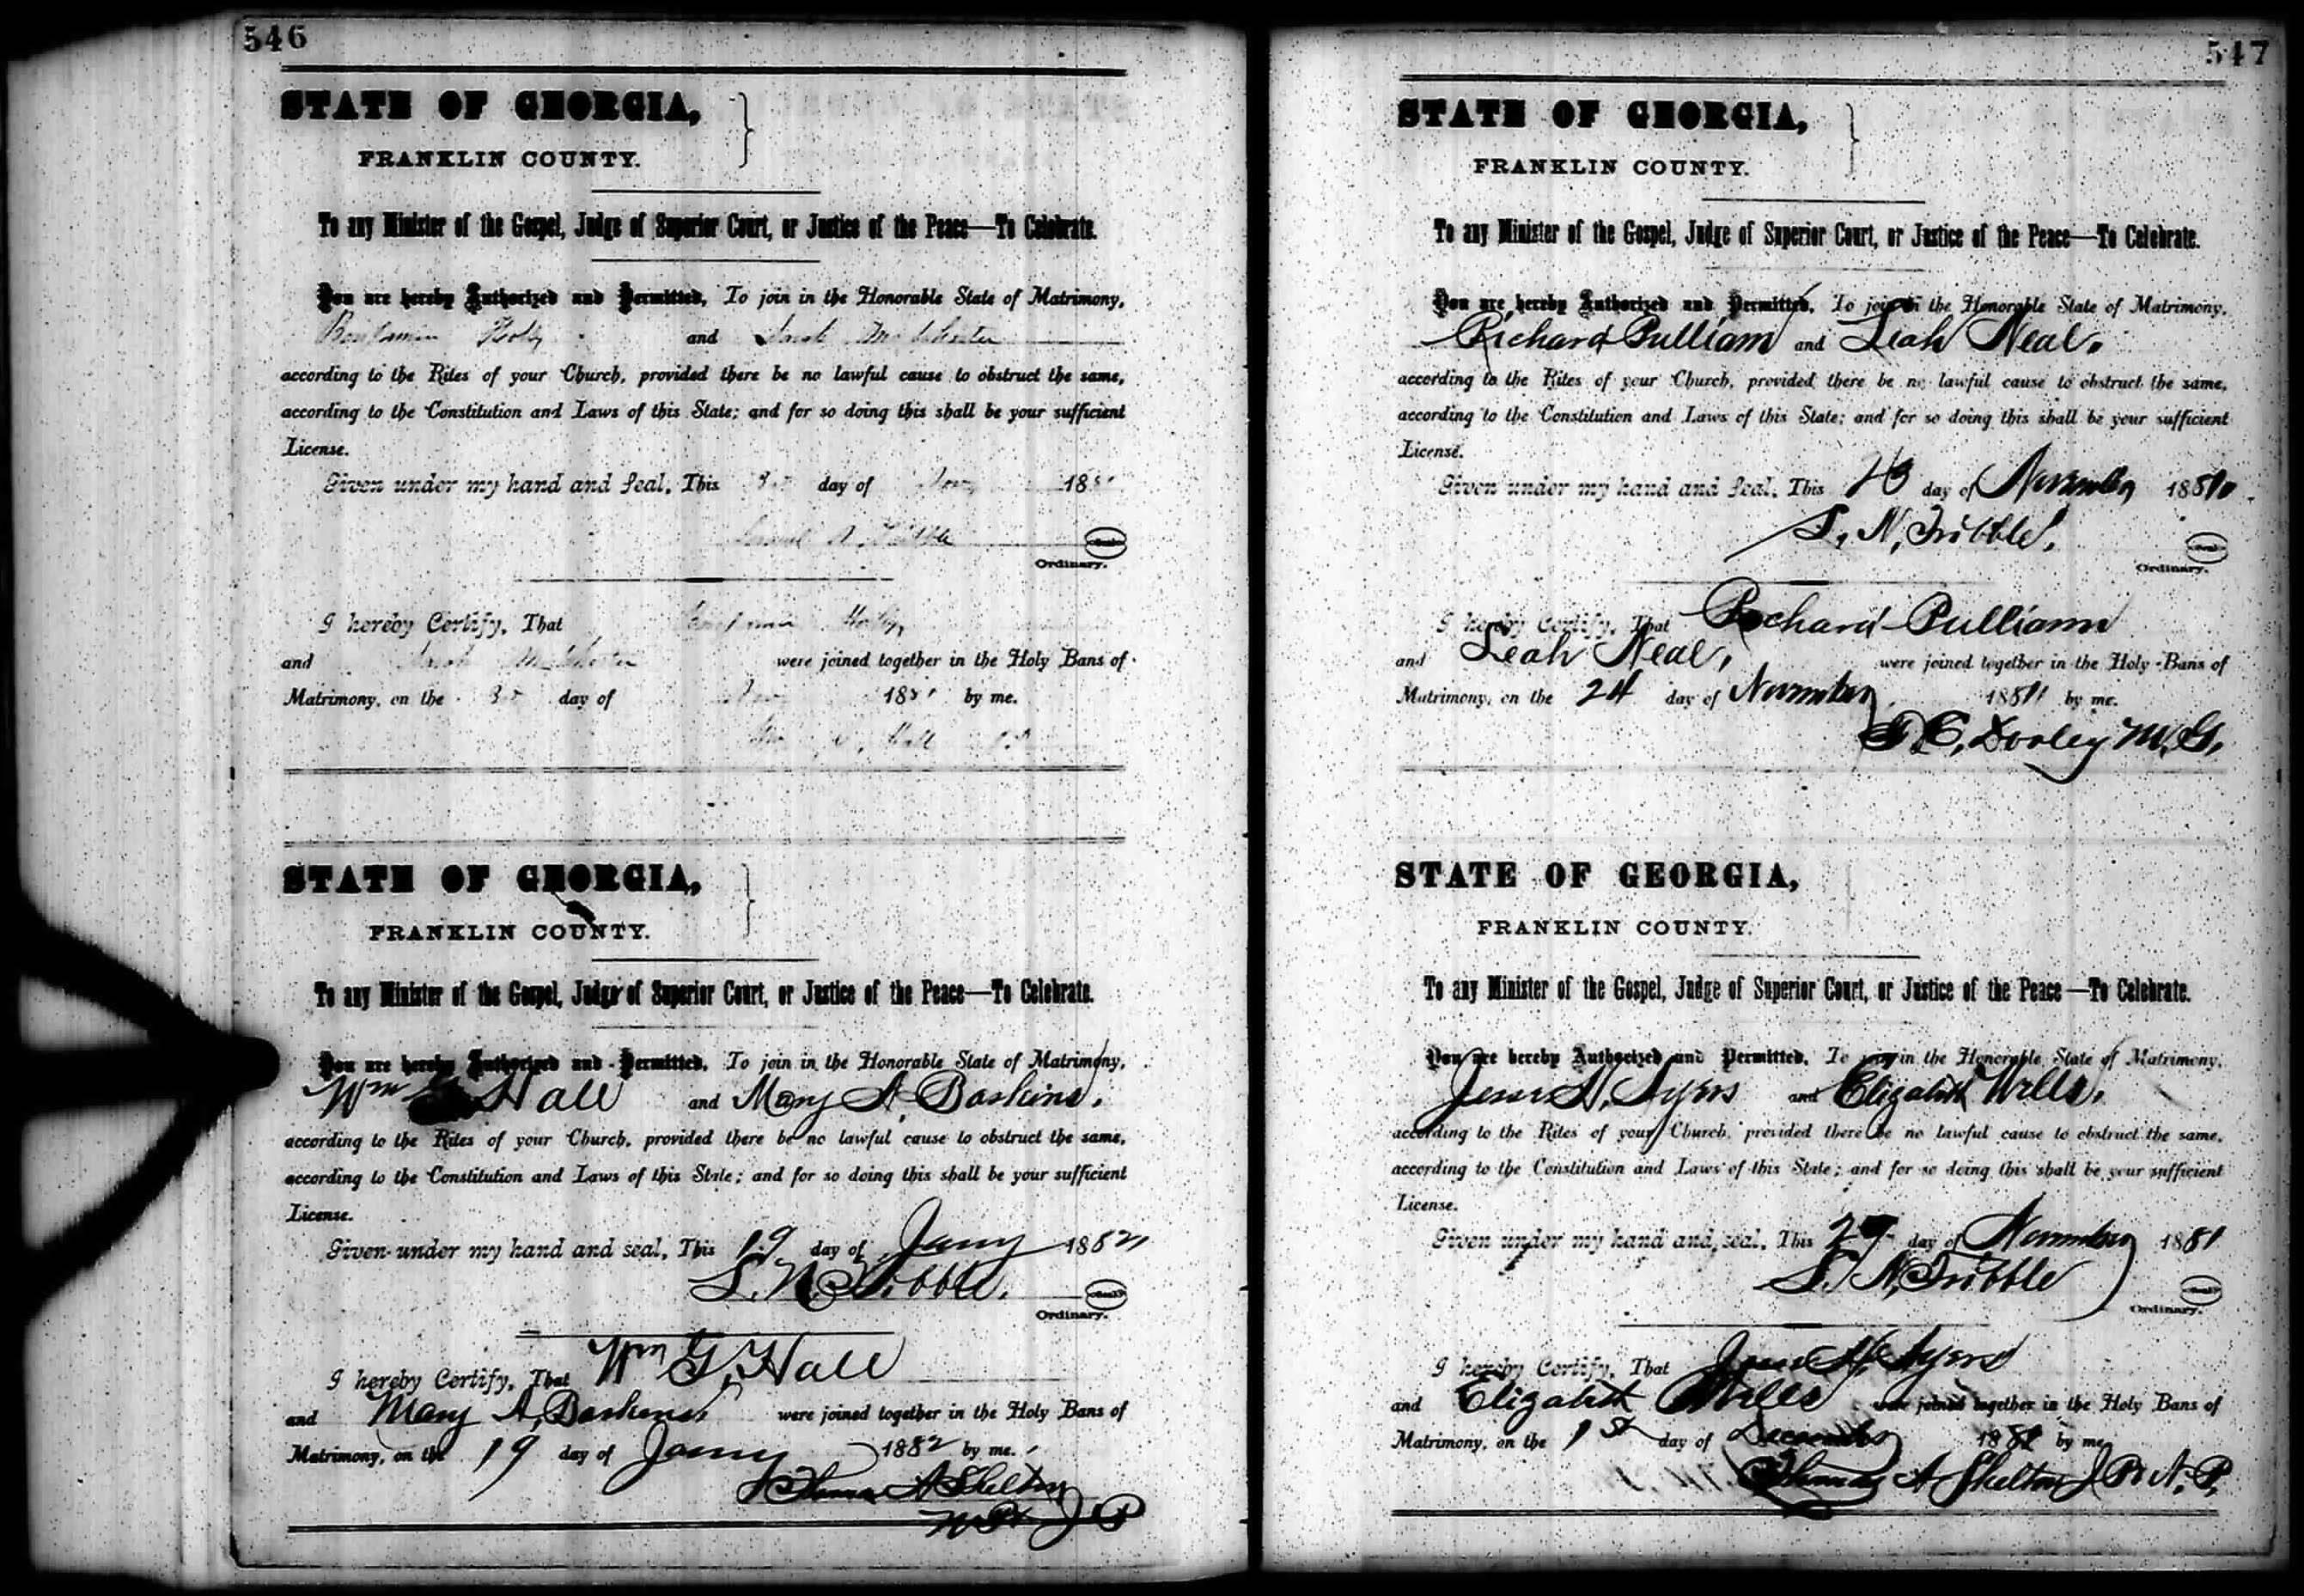 546
STATE OF GEORGIA,
FRANKLIN COUNTY.
To any Minister of the Gospel, Judge of Superior Court, or Justice of the Peace—To Celebrate.
You are hereby Authorized and Permitted, To join in the Honorable State of Matrimony,
Benjamin and Sarah
according to the Rites of your Church, provided there be no lawful cause to obstruct the same,
according to the Constitution and Laws of this State; and for so doing this shall be your sufficient
License.
Given under my hand and Seal, This day of 188
Ordinary.
I hereby Certify, That
and Sarah were joined together in the Holy Bans of
Matrimony, on the day of 188 by me.
Hall
STATE OF GEORGIA,
FRANKLIN COUNTY.
To any Minister of the Gospel, Judge of Superior Court, or Justice of the Peace—To Celebrate.
You are hereby Authorized and Permitted, To join in the Honorable State of Matrimony,
Wm G Hall and Mary A, Baskins.
according to the Rites of your Church, provided there be no lawful cause to obstruct the same,
according to the Constitution and Laws of this State; and for so doing this shall be your sufficient
License.
Given under my hand and seal, This 19 day of Jany 1882
S. N. Tribble.
Ordinary.
I hereby Certify, That Wm G, Hall
and Mary A, Baskins were joined together in the Holy Bans of
Matrimony, on the 19 day of Jany 1882 by me.
Thomas A Shelton
J P
547
STATE OF GEORGIA,
FRANKLIN COUNTY.
To any Minister of the Gospel, Judge of Superior Court, or Justice of the Peace—To Celebrate.
You are hereby Authorized and Permitted, To join in the Honorable State of Matrimony,
Richard Pulliam and Leah Neal.
according to the Rites of your Church, provided there be no lawful cause to obstruct the same,
according to the Constitution and Laws of this State; and for so doing this shall be your sufficient
License.
Given under my hand and Seal, This 23 day of November 1881
S. N. Tribble.
Ordinary.
I hereby Certify, That Richard Pulliam
and Leah Neal, were joined together in the Holy Bans of
Matrimony, on the 24 day of November 1881 by me.
Dooley M. G.
STATE OF GEORGIA,
FRANKLIN COUNTY.
To any Minister of the Gospel, Judge of Superior Court, or Justice of the Peace—To Celebrate.
You are hereby Authorized and Permitted, To join in the Honorable State of Matrimony,
Jesse N. Ayers and Elizabeth Wells.
according to the Rites of your Church, provided there be no lawful cause to obstruct the same,
according to the Constitution and Laws of this State; and for so doing this shall be your sufficient
License.
Given under my hand and seal, This 29 day of November 1881
S. N. Tribble
Ordinary.
I hereby Certify, That Jesse N. Ayers
and Elizabeth Wells were joined together in the Holy Bans of
Matrimony, on the 1st day of December 1881 by me
Thomas A Shelton J. P. N. P.